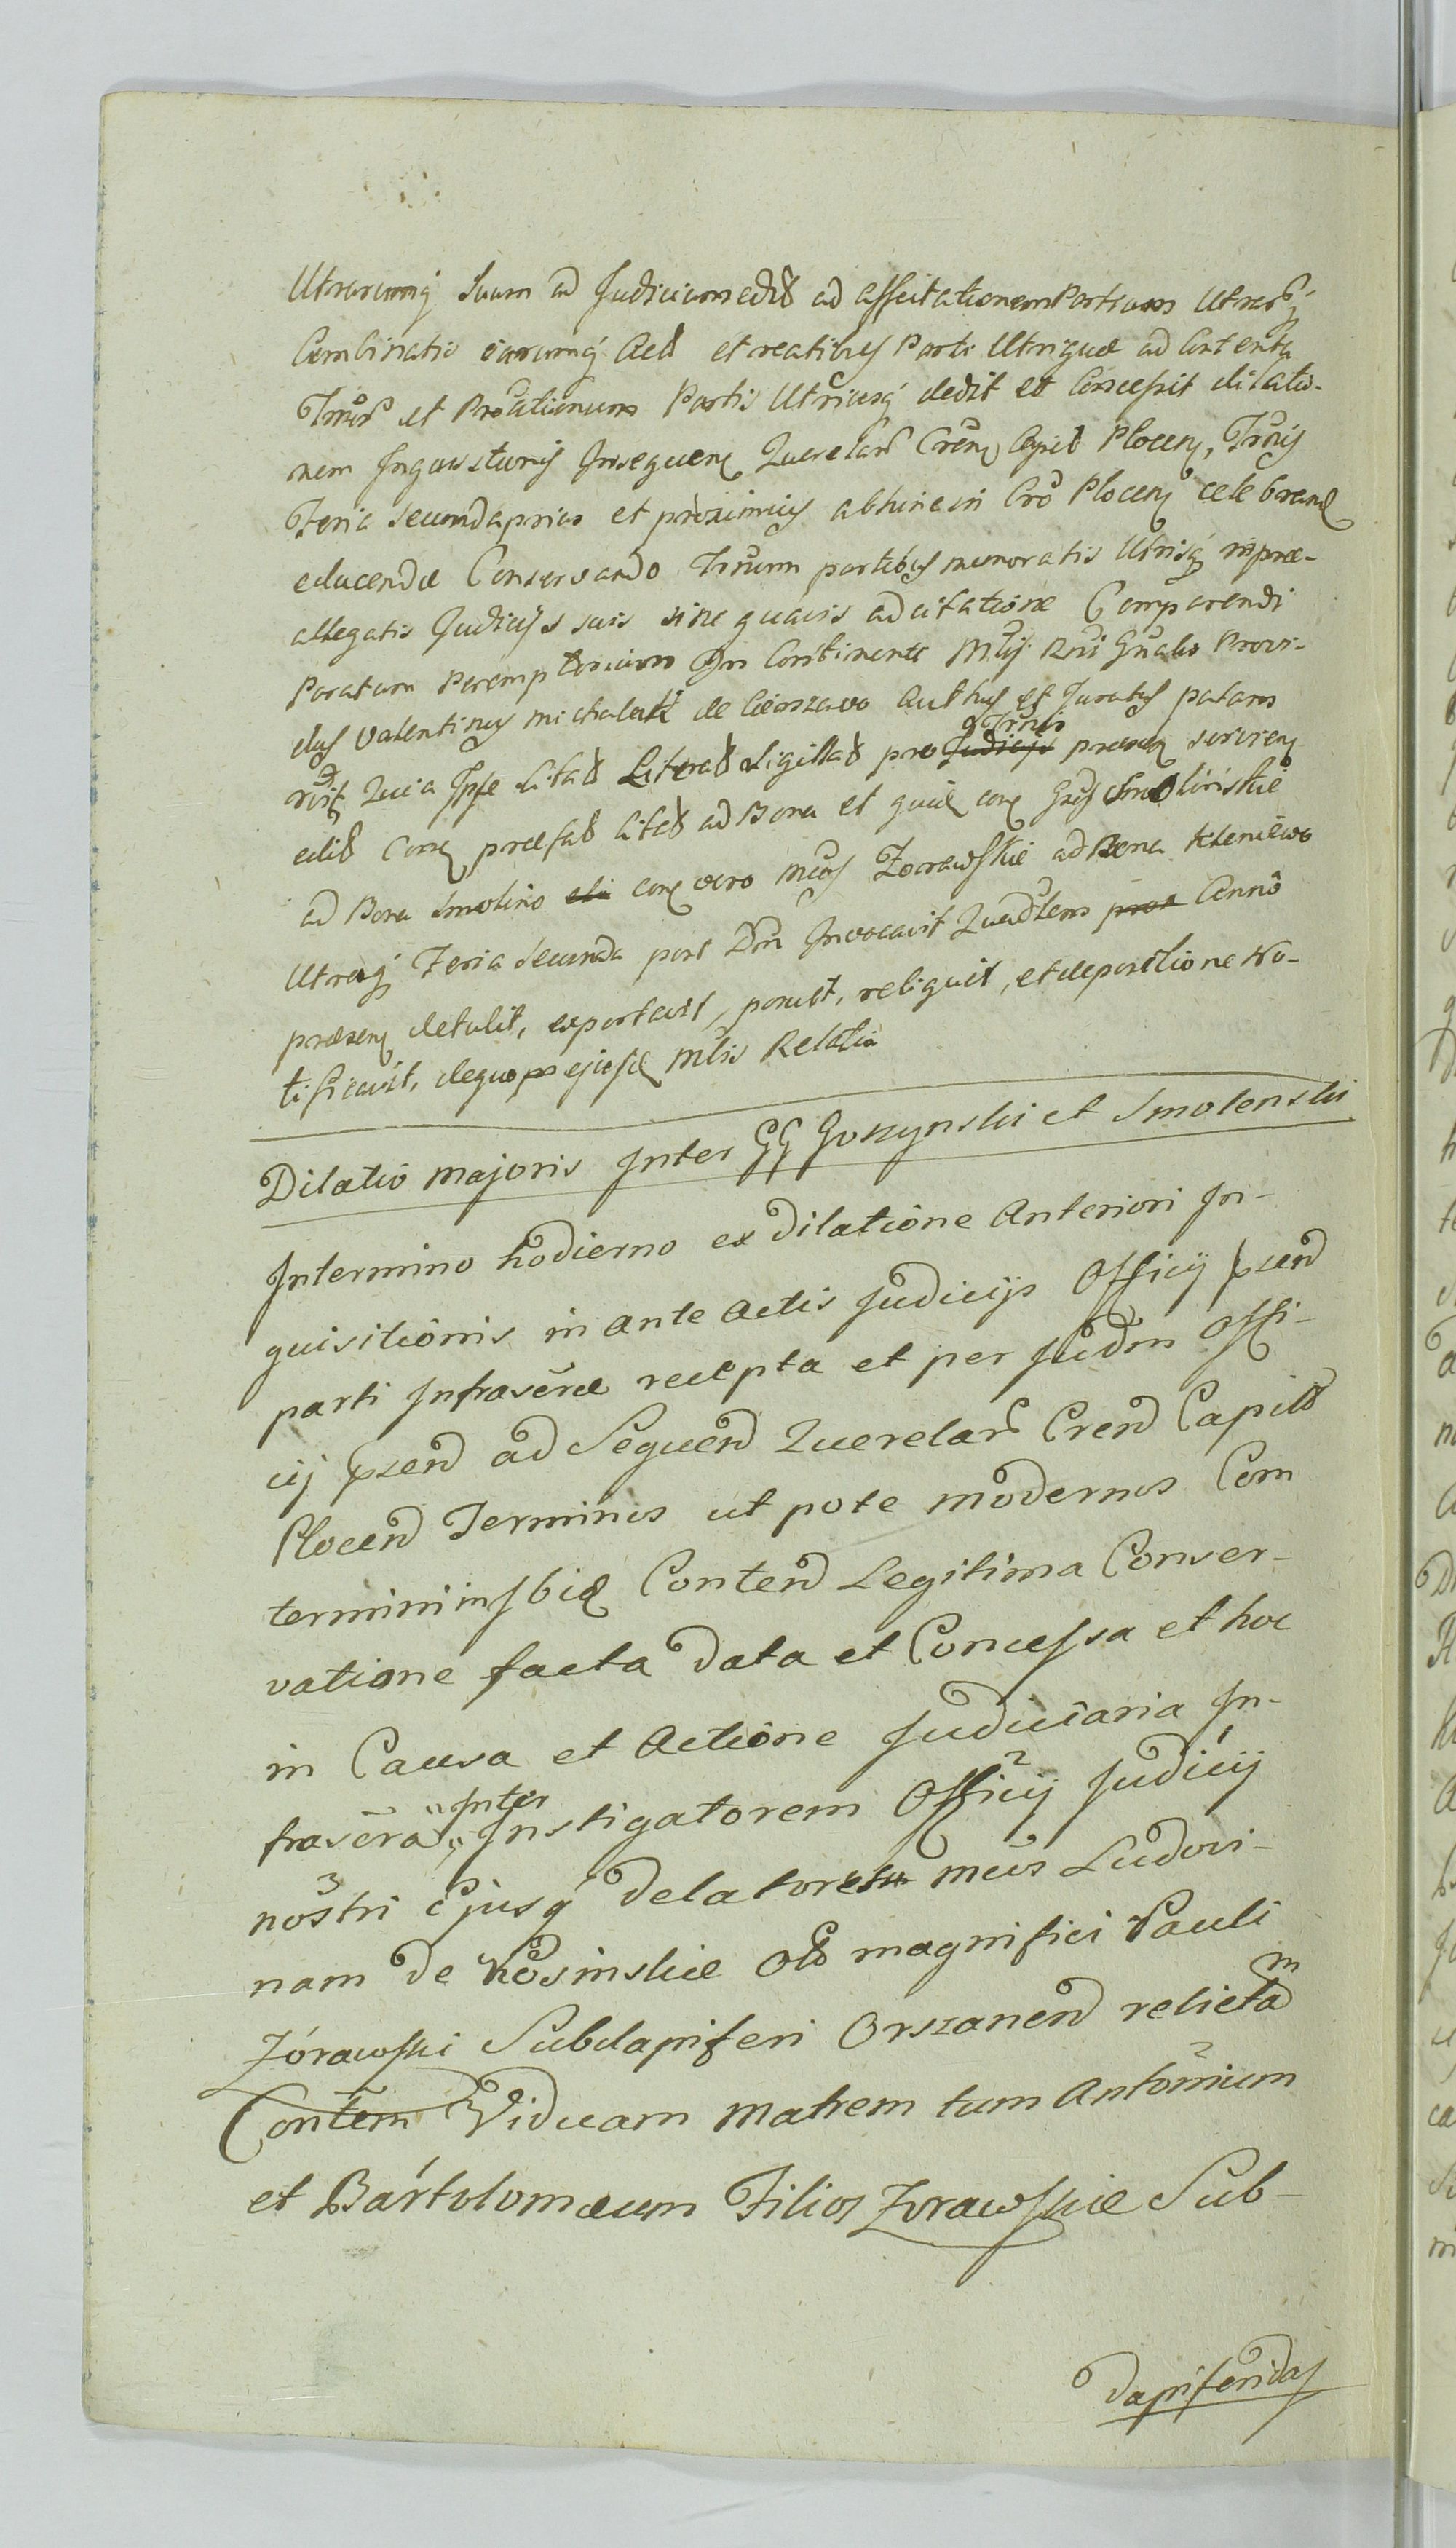 Utrarumq suam ad Judicium edit ad affectationem Partium Utrarq
Combinatis earumq Act et reatibus Parti Utrique ad Contenta
Tmor et Proationum Partis Utriusq dedit et Concessit dilatio-
nem Inquisitionis Insequen Querelar Cren Capit Plocen, Tmis
Feria secunda prias et proximius abhinc in Cro Plocen celebrand
educendae Conservando Tmum partibus memoratis Utrisq in prae-
allegatis Judicijs suis sine quavis adcitatione Comparendi
Paratum Peremptorium In Continenti Mtij Rni Gnalis Provi-
dus Valentinus Michalak de Cieszewo Authus et Juratus palam
rcit Quia Ipse Citat Literas Sigillat pro Judicijs Tmis praesen servien
edit Conx praefat citat ad Bona et quid conx Gsos Smolinskie
ad Bona Smolino eti conx vero Mcos Zorawskie ad Bona Kleniewo
Utraq Feria Secunda post Dm Invocavit Quadlem prox Anno
praesen detulit, exportavit, posuit, reliquit, et depositione No-
tificavit, dequo pr ejusd Mlis Relatio
Dilatio majoris Inter GG Goszynski et Smolenski
In termino hodierno ex dilatione Anteriori In-
quisitionis in ante Actis Judicijs Officij psend
parti Infrascrae recepta et per Judm Offi-
cij psend ad Sequend Querelar Crend Capitt
Plocend Terminos ut pote modernos Com
termini in Ibid Contend Legitima Conser-
vatione facta data et Concessa et hoc
in Causa et Actione Judiciaria In-
frascra Inter Instigatorem Officij Judicij
nostri Ejusq delatores Mcus Ludovi-
nam de Kosinskie Olt magnifici Pauli
Zórawski Subdapiferi Orszanend relictam
Contem Viduam Matrem tum Antonium
et Bartolomaeum Filios Zorawskie Sub-
dapiferidas